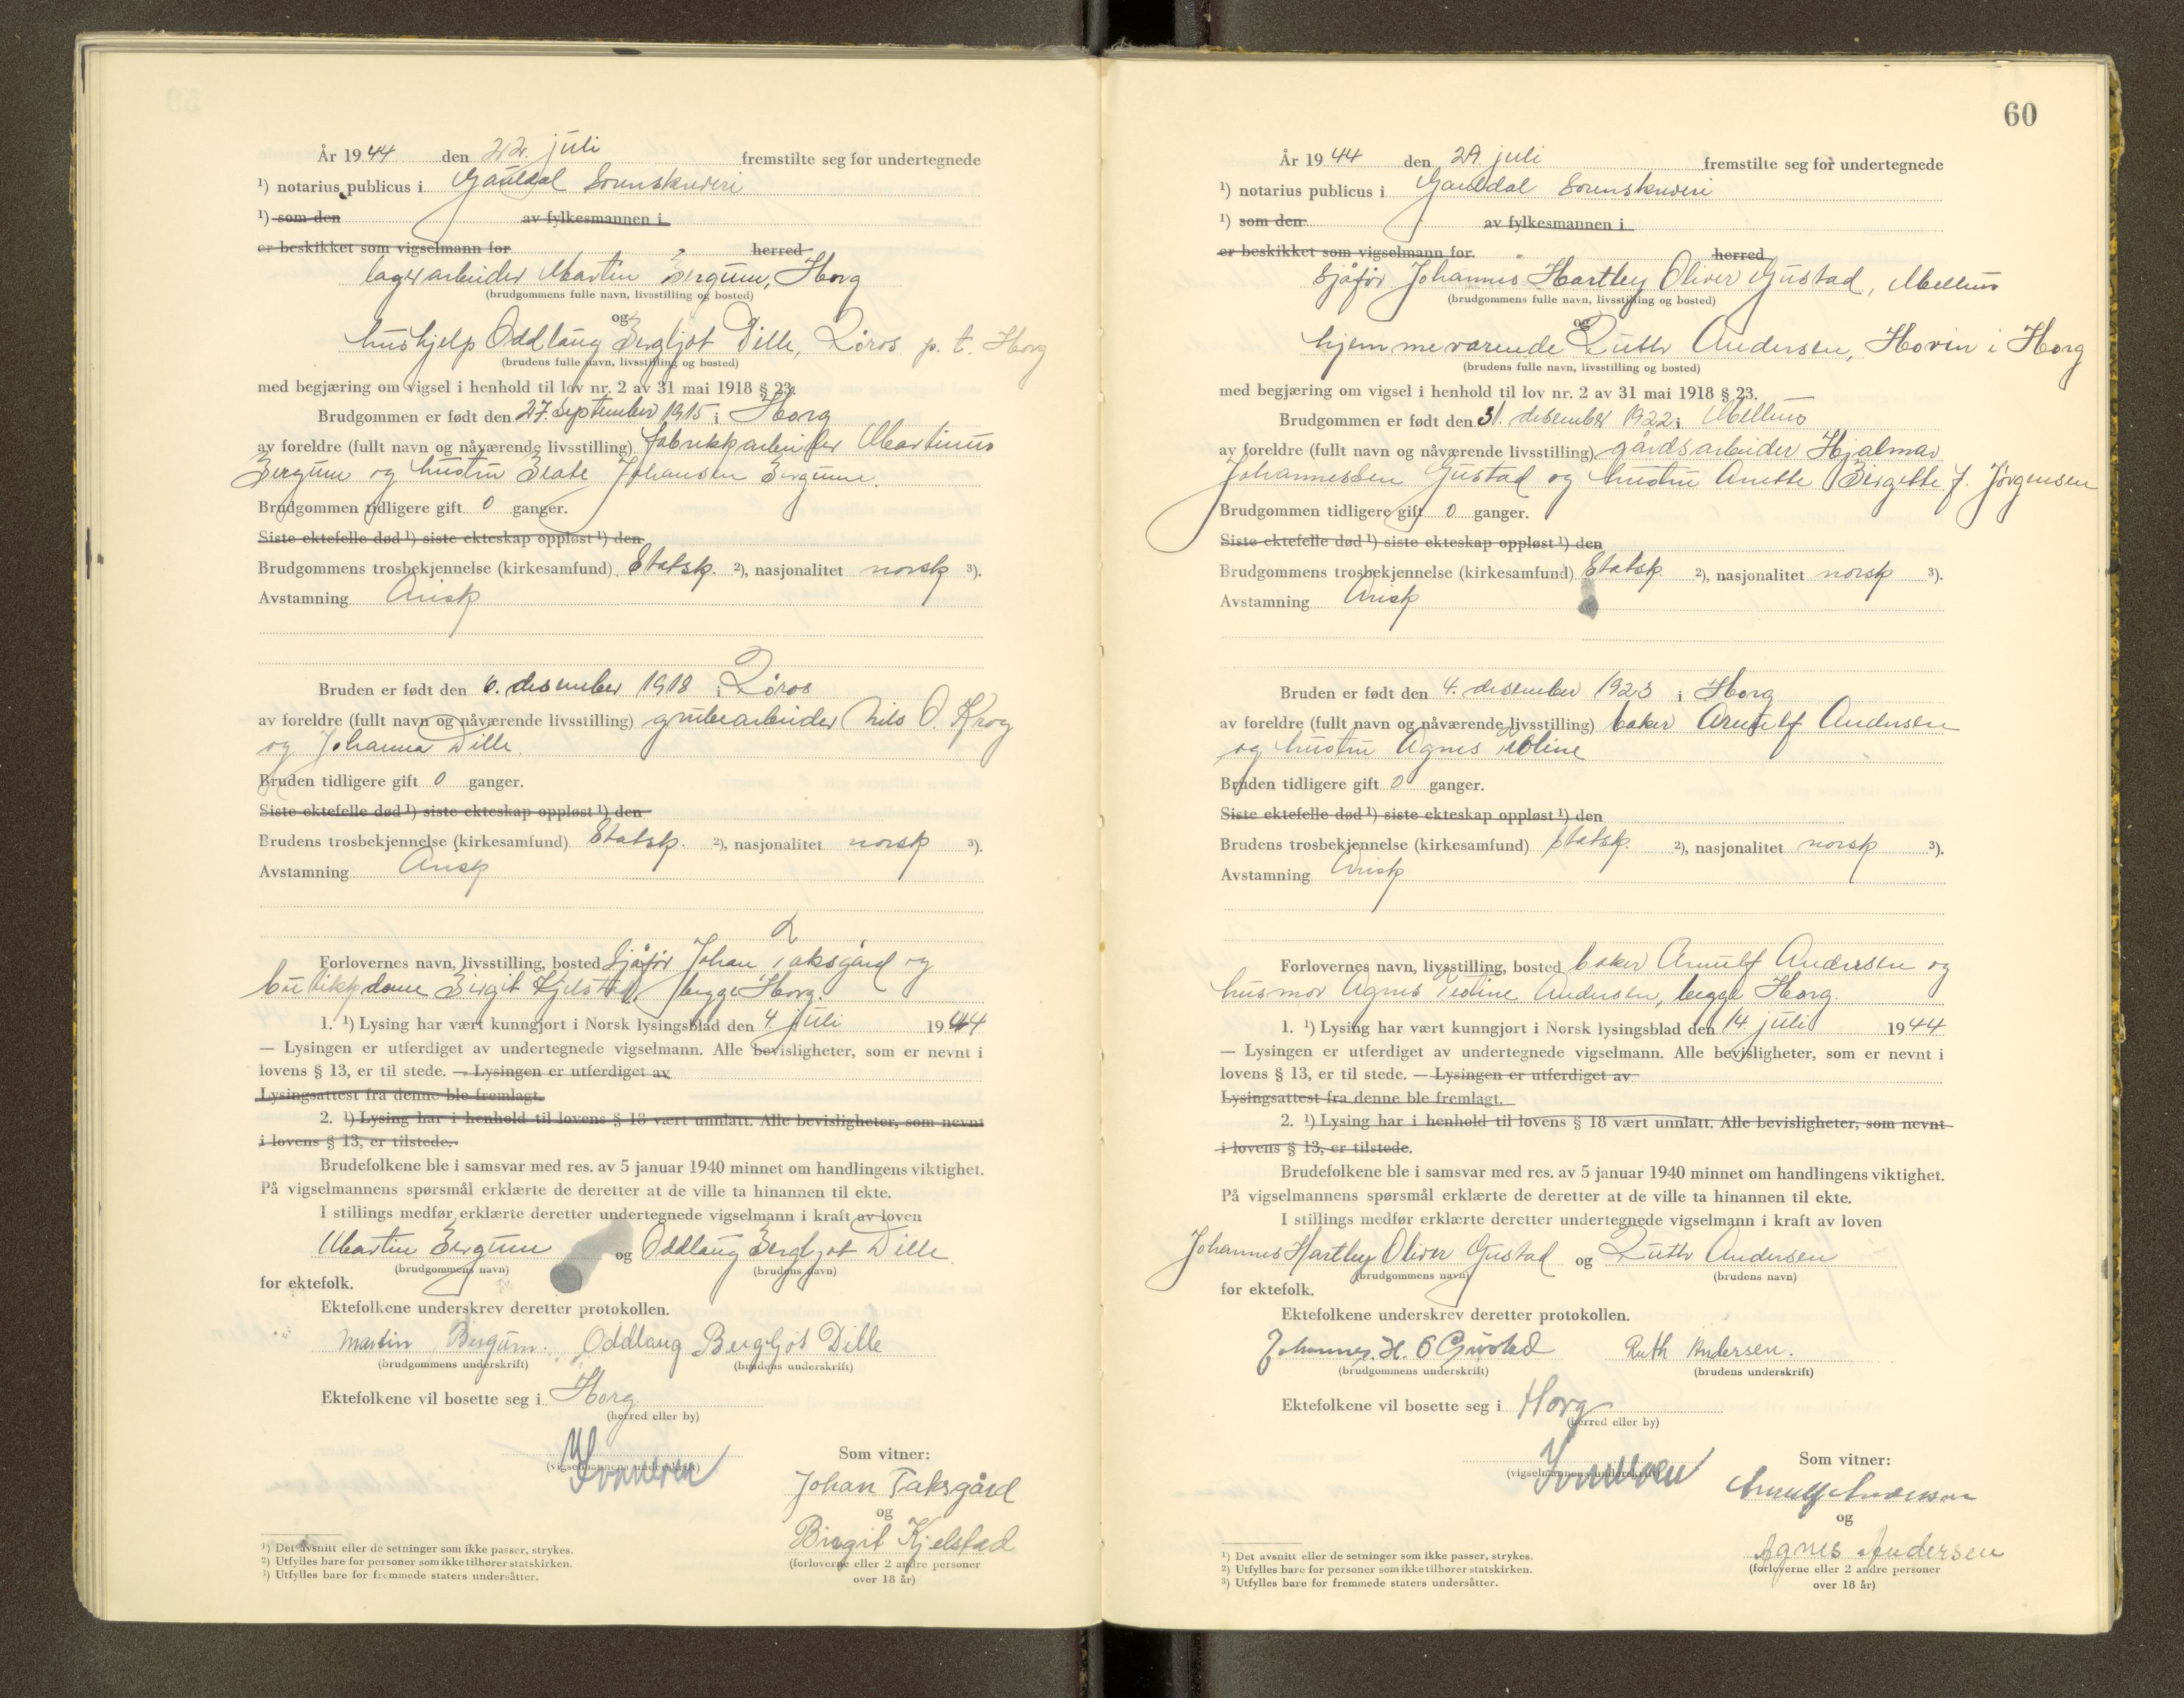 År 1944 den 22. juli fremstilte seg for undertegnede
¹) notarius publicus i Gauldal Sorenskriveri
¹) som den av fylkesmannen i
er beskikket som vigselmann for herred
lagerarbeider Martin Bergum, Horg
(brudgommens fulle navn, livsstilling og bosted)
og
hushjelp Oddlaug Bergljot Dille, Röros p. t. Horg
(brudens fulle navn, livsstilling og bosted)
med begjæring om vigsel i henhold til lov nr. 2 av 31 mai 1918 § 23.
Brudgommen er født den 27. september 1915 i Horg
av foreldre (fullt navn og nåværende livsstilling) fabrikkarbeider Martinus
Bergum og hustru Beate Johansen Bergum.
Brudgommen tidligere gift 0 ganger.
Siste ektefelle død ¹) siste ekteskap oppløst ¹) den
Brudgommens trosbekjennelse (kirkesamfund) Statsk. ²), nasjonalitet norsk ³).
Avstamning Arisk
Bruden er født den 6. desember 1918 i Röros
av foreldre (fullt navn og nåværende livsstilling) grubearbeider Nils O. Krog
og Johanna Dille.
Bruden tidligere gift 0 ganger.
Siste ektefelle død ¹) siste ekteskap oppløst ¹) den
Brudens trosbekjennelse (kirkesamfund) Statsk. ²), nasjonalitet norsk ³).
Avstamning Arisk
Forlovernes navn, livsstilling, bosted Sjåför Johan Taksgård og
butikkdame Birgit Kjelstad, begge Horg.
1. ¹) Lysing har vært kunngjort i Norsk lysingsblad den 4 juli 1944
— Lysingen er utferdiget av undertegnede vigselmann. Alle bevisligheter, som er nevnt i
lovens § 13, er til stede. — Lysingen er utferdiget av
Lysingsattest fra denne ble fremlagt.
2. ¹) Lysing har i henhold til lovens § 18 vært unnlatt. Alle bevisligheter, som nevnt
i lovens § 13, er tilstede.
Brudefolkene ble i samsvar med res. av 5 januar 1940 minnet om handlingens viktighet.
På vigselmannens spørsmål erklærte de deretter at de ville ta hinannen til ekte.
I stillings medfør erklærte deretter undertegnede vigselmann i kraft av loven
Martin Bergum og Oddlaug Bergljot Dille
(brudgommens navn) (brudens navn)
for ektefolk.
Ektefolkene underskrev deretter protokollen.
Martin Bergum. Oddlaug Bergljot Dille
(brudgommens underskrift) (brudens underskrift)
Ektefolkene vil bosette seg i Horg
(herred eller by)
Som vitner:
(vigselmannens underskrift)
Johan Taksgård
og
Birgit Kjelstad
(forloverne eller 2 andre personer
over 18 år)
¹) Det avsnitt eller de setninger som ikke passer, strykes.
²) Utfylles bare for personer som ikke tilhører statskirken.
³) Utfylles bare for fremmede staters undersåtter.
60
År 1944 den 29 juli fremstilte seg for undertegnede
¹) notarius publicus i Gauldal Sorenskriveri
¹) som den av fylkesmannen i
er beskikket som vigselmann for herred
Sjåför Johannes Hartley Oliver Gustad, Melhus
(brudgommens fulle navn, livsstilling og bosted)
og
hjemmeværende Ruth Andersen, Hovin i Horg
(brudens fulle navn, livsstilling og bosted)
med begjæring om vigsel i henhold til lov nr. 2 av 31 mai 1918 § 23.
Brudgommen er født den 31. desember 1922 i Melhus
av foreldre (fullt navn og nåværende livsstilling) gårdsarbeider Hjalmar
Johannessen Gustad og hustru Anette Birgitte J. Jörgensen
Brudgommen tidligere gift 0 ganger.
Siste ektefelle død ¹) siste ekteskap oppløst ¹) den
Brudgommens trosbekjennelse (kirkesamfund) Statsk. ²), nasjonalitet norsk ³).
Avstamning Arisk
Bruden er født den 4. desember 1923 i Horg
av foreldre (fullt navn og nåværende livsstilling) baker Arnulf Andersen
og hustru Agnes
Bruden tidligere gift 0 ganger.
Siste ektefelle død ¹) siste ekteskap oppløst ¹) den
Brudens trosbekjennelse (kirkesamfund) Statsk. ²), nasjonalitet norsk ³).
Avstamning Arisk
Forlovernes navn, livsstilling, bosted baker Arnulf Andersen og
husmor Agnes Andersen, begge Horg.
1. ¹) Lysing har vært kunngjort i Norsk lysingsblad den 14 juli 1944
— Lysingen er utferdiget av undertegnede vigselmann. Alle bevisligheter, som er nevnt i
lovens § 13, er til stede. — Lysingen er utferdiget av
Lysingsattest fra denne ble fremlagt.
2. ¹) Lysing har i henhold til lovens § 18 vært unnlatt. Alle bevisligheter, som nevnt
i lovens § 13, er tilstede.
Brudefolkene ble i samsvar med res. av 5 januar 1940 minnet om handlingens viktighet.
På vigselmannens spørsmål erklærte de deretter at de ville ta hinannen til ekte.
I stillings medfør erklærte deretter undertegnede vigselmann i kraft av loven
Johannes Hartley Oliver Gustad og Ruth Andersen
(brudgommens navn) (brudens navn)
for ektefolk.
Ektefolkene underskrev deretter protokollen.
Johannes. H. O Gustad Ruth Andersen.
(brudgommens underskrift) (brudens underskrift)
Ektefolkene vil bosette seg i Horg
(herred eller by)
Som vitner:
(vigselmannens underskrift)
Arnulf Andersen
og
Agnes Andersen
(forloverne eller 2 andre personer
over 18 år)
¹) Det avsnitt eller de setninger som ikke passer, strykes.
²) Utfylles bare for personer som ikke tilhører statskirken.
³) Utfylles bare for fremmede staters undersåtter.